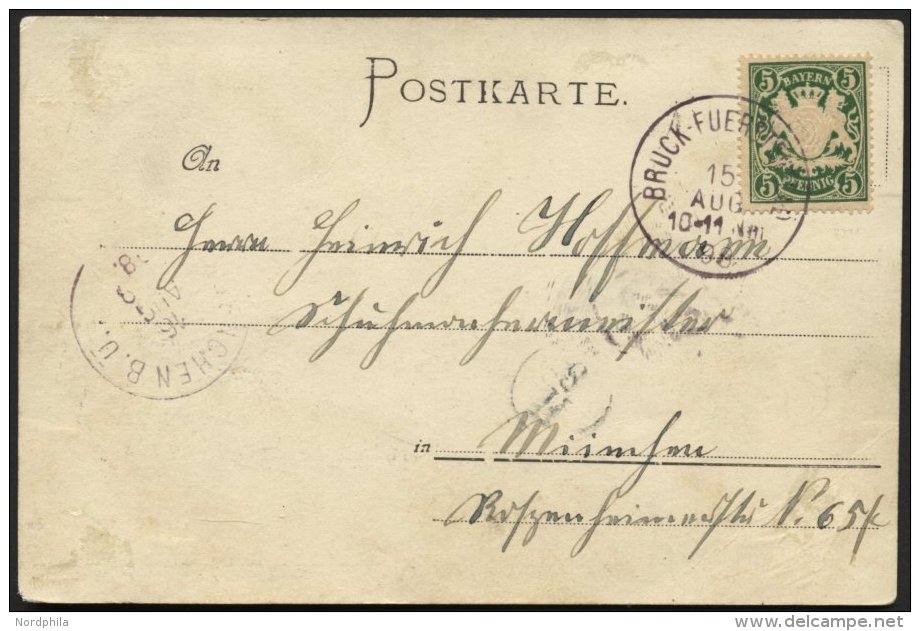 POSTKARTE.
5 BAYERN 5
5 PFENNIG 5
BRUCK-FUER
15
AUG
10-11 Nm
98
An
Herrn Heinrich Hoffmann
Schuhmachermeister
8.
AUG
CHEN B. Ü.
in München
Rosenheimerstr N. 65/
Nordphila
www.delcampe.net